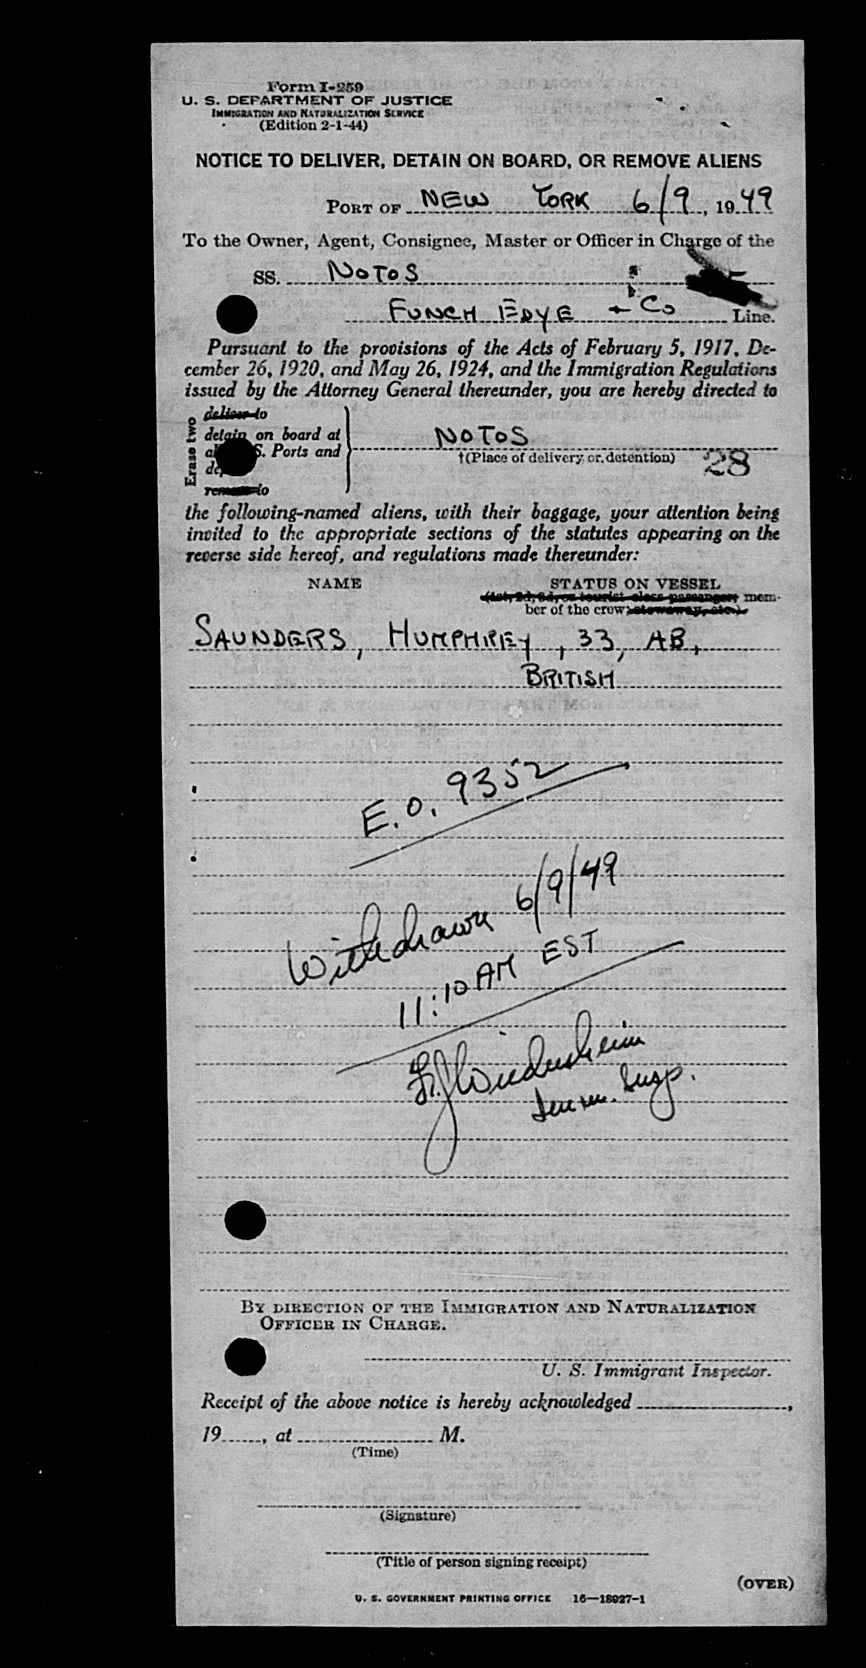 Form I-259
U. S. DEPARTMENT OF JUSTICE
IMMIGRATION AND NATURALIZATION SERVICE
(Edition 2-1-44)
NOTICE TO DELIVER, DETAIN ON BOARD, OR REMOVE ALIENS
PORT OF NEW YORK 6/9, 1949
To the Owner, Agent, Consignee, Master or Officer in Charge of the
SS. NOTOS
FUNCH EDYE + Co Line.
Pursuant to the provisions of the Acts of February 5, 1917, De-
cember 26, 1920, and May 26, 1924, and the Immigration Regulations
issued by the Attorney General thereunder, you are hereby directed to
Erase two
deliver to
detain on board at
S. Ports and
remove to
NOTOS
†(Place of delivery or detention) 28
the following-named aliens, with their baggage, your attention being
invited to the appropriate sections of the statutes appearing on the
reverse side hereof, and regulations made thereunder:
NAME STATUS ON VESSEL
(1st, 2d, 3d, or tourist class passenger, mem-
ber of the crew, stowaway, etc.)
SAUNDERS, HUMPHREY, 33, AB,
BRITISH
E.O. 9352
Withdrawn 6/9/49
11:10 AM EST
Imm. Insp.
BY DIRECTION OF THE IMMIGRATION AND NATURALIZATION
OFFICER IN CHARGE.
U. S. Immigrant Inspector.
Receipt of the above notice is hereby acknowledged ,
19 , at M.
(Time)
(Signature)
(Title of person signing receipt)
(OVER)
U. S. GOVERNMENT PRINTING OFFICE 16—18927-1